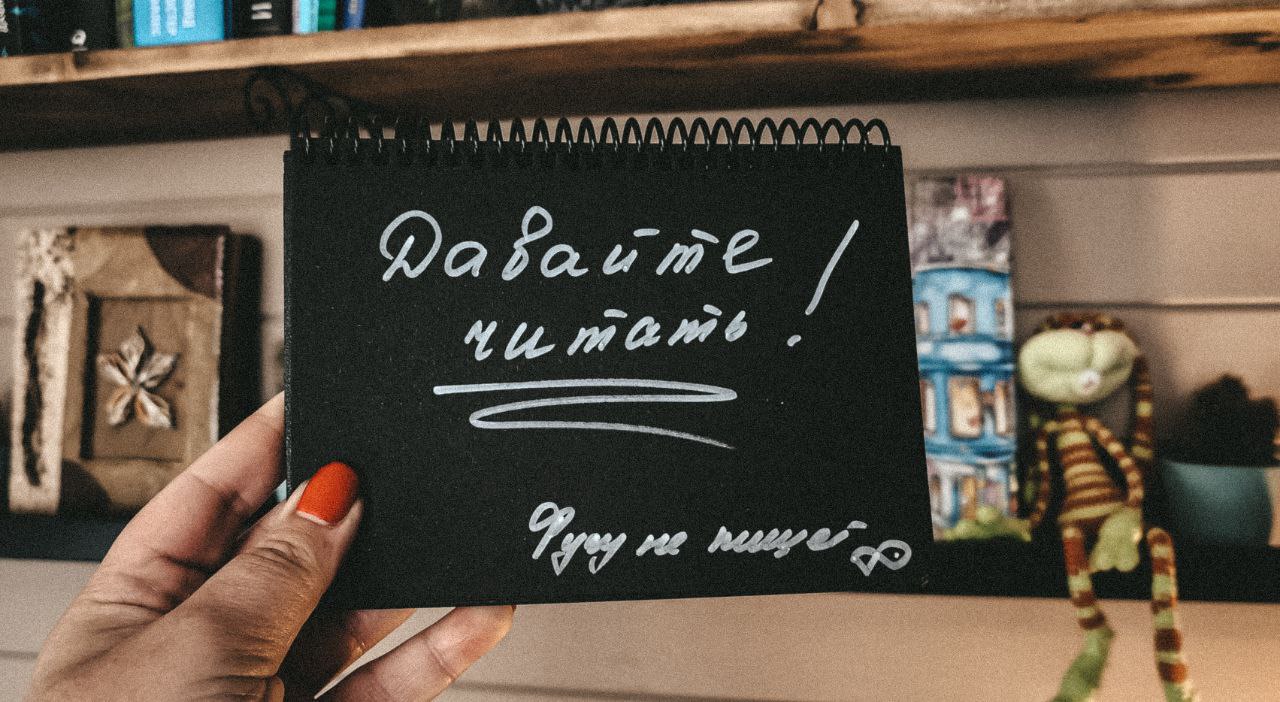 Давайте
читать!
Фугу не пишет